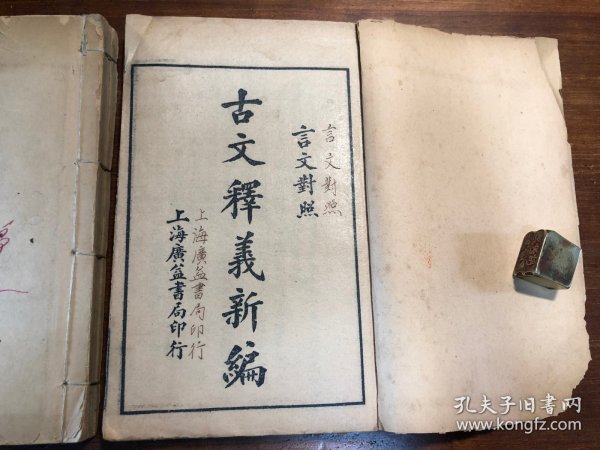 言文對照
言文對照
古文釋義新編
上海廣益書局印行
上海廣益書局印行
孔夫子旧书网
www.kongfz.com